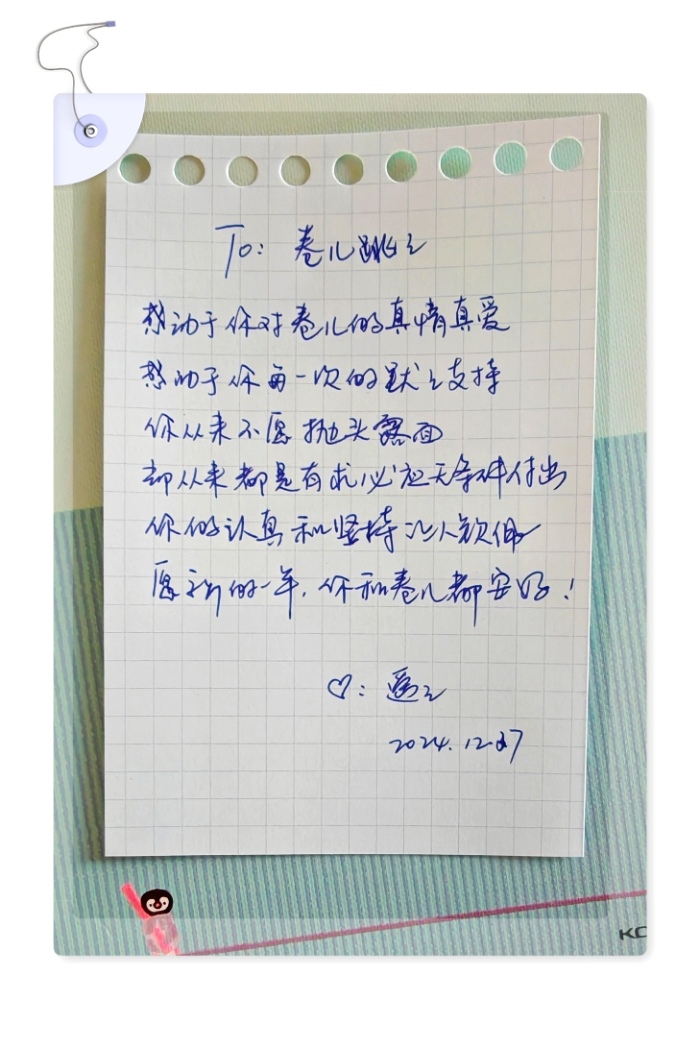 To: 卷儿跳跳
感动于你对卷儿的真情真爱
感动于你每一次的默默支持
你从来不愿抛头露面
却从来都是有求必应无条件付出
你的认真和坚持让人钦佩
愿新的一年,你和卷儿都安好!
♡:
2024.12.27
KC